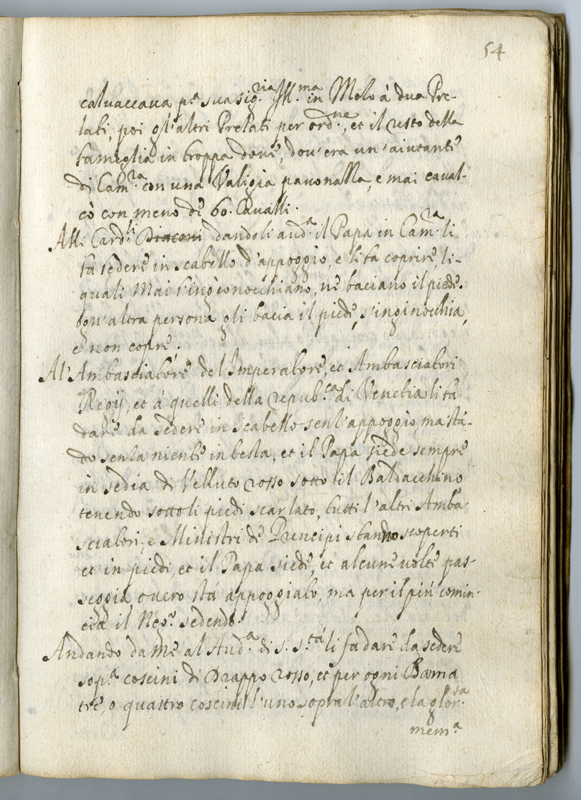 54
caluaccaua p.ª sua sig.ria Ill.ma in Melo à dua Pre-
lati, poi gl'altri Prelati per ord.ne, et il resto della
famiglia in troppa doue, dou'era un'aiutante
di Cam.ra con una Valigia pauonazza, e mai caual-
cò con meno de 60. Cavalli.
Alli Card.li Diaconi dandoli aud.ª il Papa in Cam.ra li
fa sedere in scabello d'appoggio, e li fa coprire li-
quali mai s'ingenocchiano, ne baciano il piede.
Ogn'altra persona gli bacia il piede, s'inginocchia,
e non copre.
Al'Ambasciatore del'Imperatore, et Ambasciatori
Regij, et à quelli della repub.ca di Venetia li fa
dare da sedere in scabello senz'appoggio ma stã-
do senza niente in testa, et il Papa siede sempre
in sedia di Velluto rosso sotto il Baldacchino
tenendo sotto li piedi scarlato, tutti l'altri Amba
sciatori e Ministri de Principi stanno scoperti
et in piedi, et il Papa siede, et alcune volte pas-
seggia o uero sta appoggiato, ma per il più comin-
cia il Neg.o sedendo.
Andando dame al Aud.ª di S. S.tà li fa dare da sedere
sop.ª coscini di Drappo rosso, et per ogni Dama
tre, o quattro coscini l'uno sopra l'altro, e la glor.sa
mem.ª